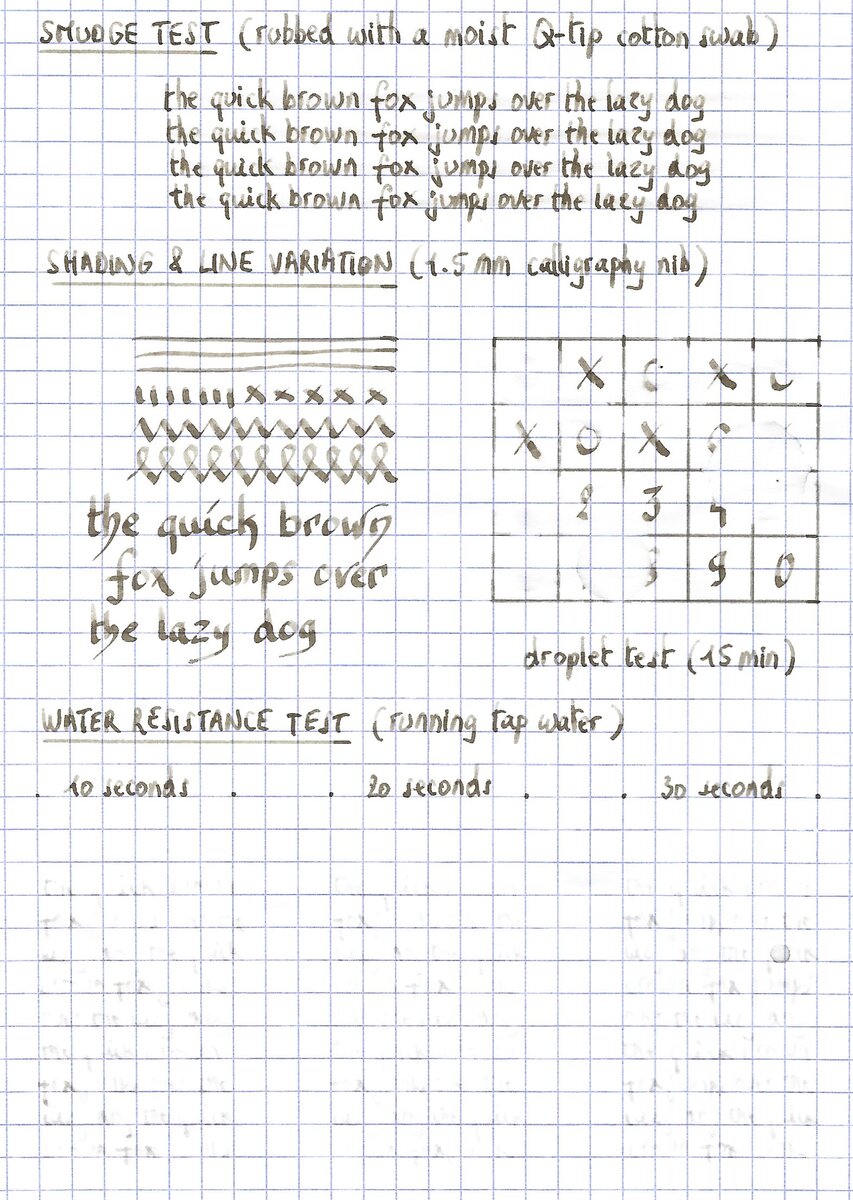 SMUDGE TEST (rubbed with a moist Q-tip cotton swab)
the quick brown fox jumps over the lazy dog
the quick brown fox jumps over the lazy dog
the quick brown fox jumps over the lazy dog
the quick brown fox jumps over the lazy dog
SHADING & LINE VARIATION (1.5 mm calligraphy nib)
the quick brown
fox jumps over
the lazy dog
X X
X O X
2 3 4
3 9 0
droplet test (15 min)
WATER RESISTANCE TEST (running tap water)
. 10 seconds . . 20 seconds . . 30 seconds .